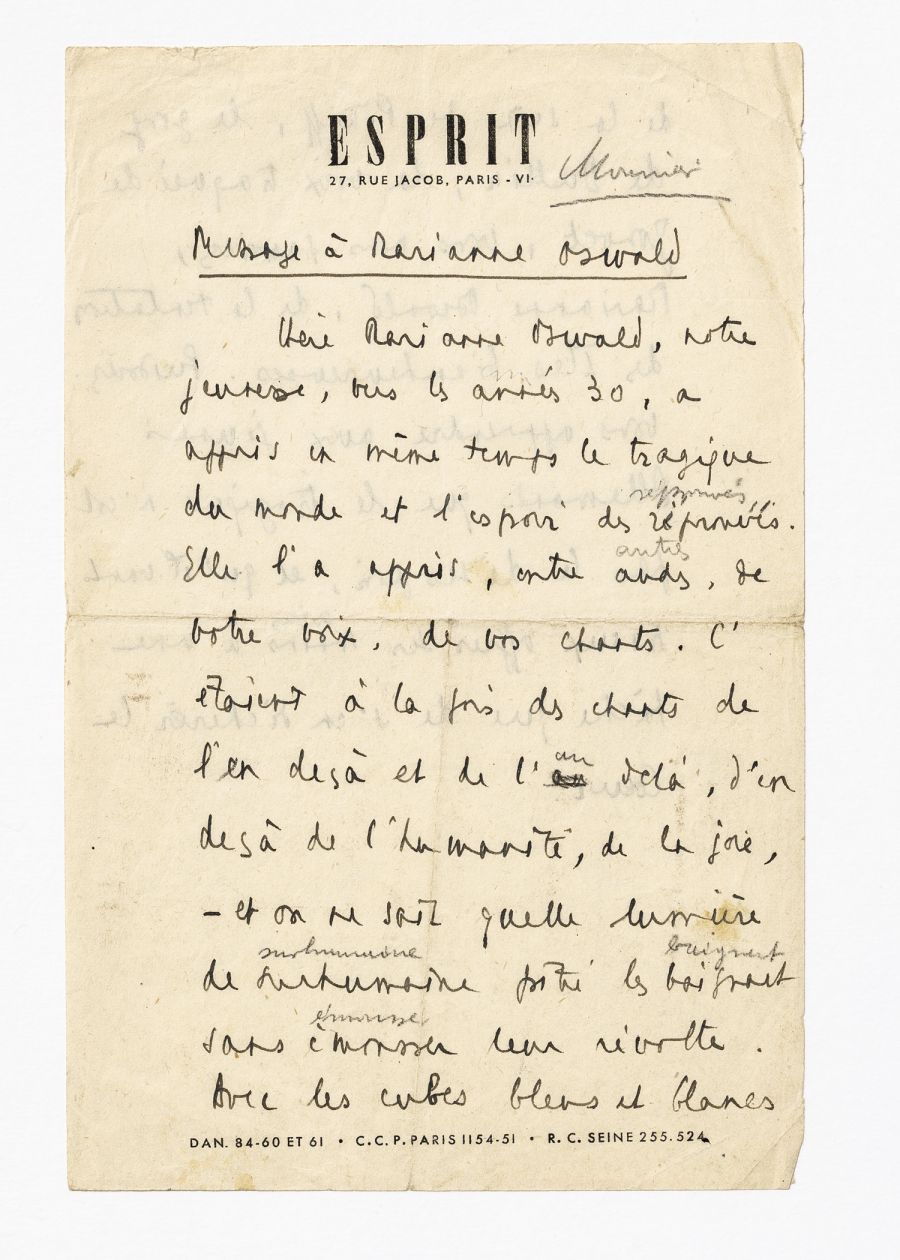 ESPRIT
27, RUE JACOB, PARIS - VIᵉ
Mounier
Message à Marianne Oswald
Chère Marianne Oswald, notre
jeunesse, vers les années 30, a
appris en même temps le tragique
réprouvés
du monde et l'espoir des réprouvés.
autres
Elle l'a appris, entre autres, de
votre voix, de vos chants. C'
étaient à la fois des chants de
au
l'en deçà et de l'au delà, d'en
deçà de l'humanité, de la joie,
– et on ne sait quelle lumière
surhumaine baignent
de surhumaine pitié les baignait
émousser
sans émousser leur révolte.
Avec les cubes bleus et blancs
DAN. 84-60 ET 61 • C.C.P. PARIS 1154-51 • R.C. SEINE 255.524